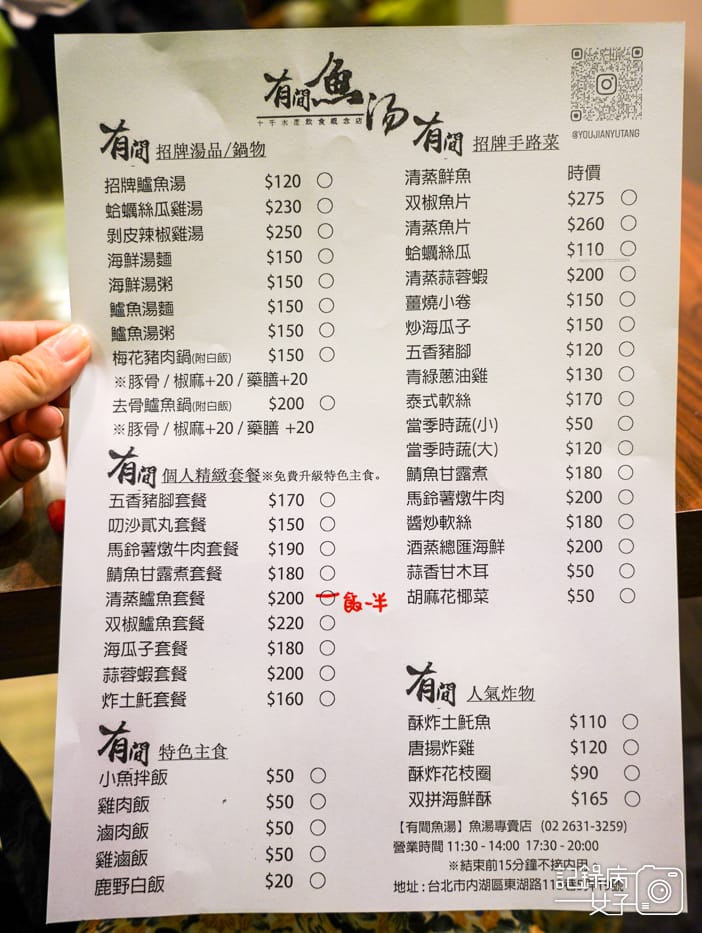 有間魚汤
十千水產飲食概念店
@YOUJIANYUTANG
有間 招牌湯品/鍋物
招牌鱸魚湯 $120 ○
蛤蠣絲瓜雞湯 $230 ○
剝皮辣椒雞湯 $250 ○
海鮮湯麵 $150 ○
海鮮湯粥 $150 ○
鱸魚湯麵 $150 ○
鱸魚湯粥 $150 ○
梅花豬肉鍋(附白飯) $150 ○
※豚骨 / 椒麻+20 / 藥膳+20
去骨鱸魚鍋(附白飯) $200 ○
※豚骨 / 椒麻+20 / 藥膳 +20
有間 個人精緻套餐※免費升級特色主食。
五香豬腳套餐 $170 ○
叨沙貳丸套餐 $150 ○
馬鈴薯燉牛肉套餐 $190 ○
鯖魚甘露煮套餐 $180 ○
清蒸鱸魚套餐 $200 ○ 一 飯一半
双椒鱸魚套餐 $220 ○
海瓜子套餐 $180 ○
蒜蓉蝦套餐 $200 ○
炸土魠套餐 $160 ○
有間 特色主食
小魚拌飯 $50 ○
雞肉飯 $50 ○
滷肉飯 $50 ○
雞滷飯 $50 ○
鹿野白飯 $20 ○
有間 招牌手路菜
清蒸鮮魚 時價
双椒魚片 $275 ○
清蒸魚片 $260 ○
蛤蠣絲瓜 $110 ○
清蒸蒜蓉蝦 $200 ○
薑燒小卷 $150 ○
炒海瓜子 $150 ○
五香豬腳 $120 ○
青綠蔥油雞 $130 ○
泰式軟絲 $170 ○
當季時蔬(小) $50 ○
當季時蔬(大) $120 ○
鯖魚甘露煮 $180 ○
馬鈴薯燉牛肉 $200 ○
醬炒軟絲 $180 ○
酒蒸總匯海鮮 $200 ○
蒜香甘木耳 $50 ○
胡麻花椰菜 $50 ○
有間 人氣炸物
酥炸土魠魚 $110 ○
唐揚炸雞 $120 ○
酥炸花枝圈 $90 ○
双拼海鮮酥 $165 ○
【有間魚湯】魚湯專賣店 (02 2631-3259)
營業時間 11:30 - 14:00 17:30 - 20:00
※結束前15分鐘不接內用。
地址 : 台北市內湖區東湖路11
記錄病
女子